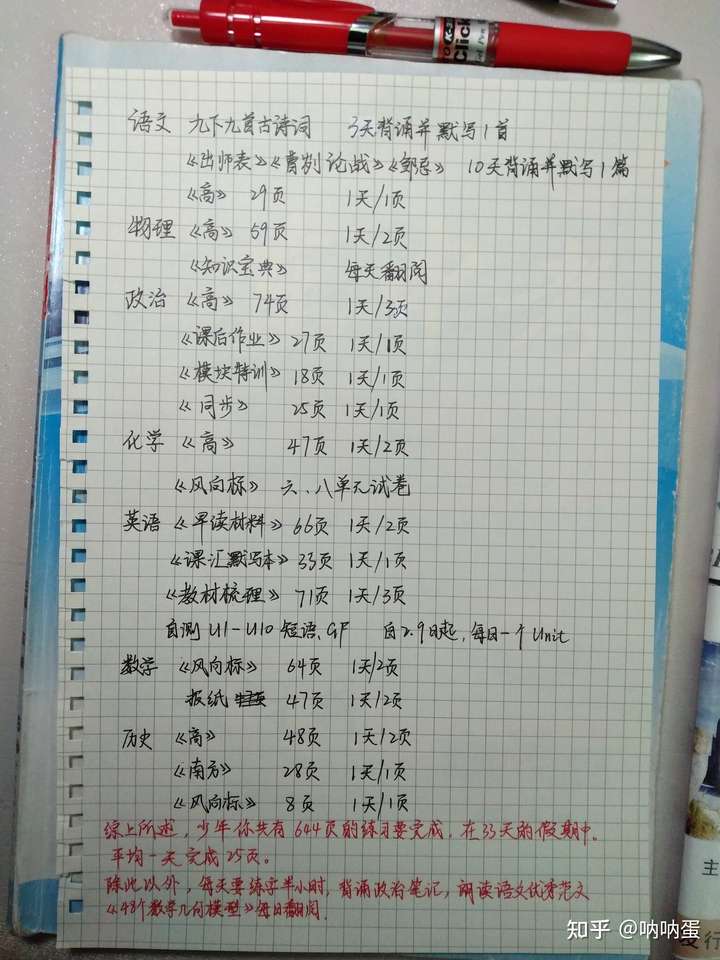 Click
语文 九下九首古诗词 3天背诵并默写1首
《出师表》《曹刿论战》《邹忌》 10天背诵并默写1篇
《高》 29页 1天/1页
物理 《高》 59页 1天/2页
《知识宝典》 每天翻阅
政治 《高》 74页 1天/3页
《课后作业》 27页 1天/1页
《模块特训》 18页 1天/1页
《同步》 25页 1天/1页
化学 《高》 47页 1天/2页
《风向标》 六、八单元试卷
英语 《早读材料》 66页 1天/2页
《课汇默写本》 33页 1天/1页
《教材梳理》 71页 1天/3页
自测 U1-U10 短语、GF 自2.9日起,每日一个Unit
数学 《风向标》 64页 1天/2页
报纸 47页 1天/2页
历史 《高》 48页 1天/2页
《南方》 28页 1天/1页
《风向标》 8页 1天/1页
综上所述,少年你共有644页的练习要完成,在33天的假期中。
平均一天完成25页。
除此以外,每天要练字半小时,背诵政治笔记,朗读语文优秀范文
《48个数学几何模型》每日翻阅.
主
发行
知乎 @呐呐蛋